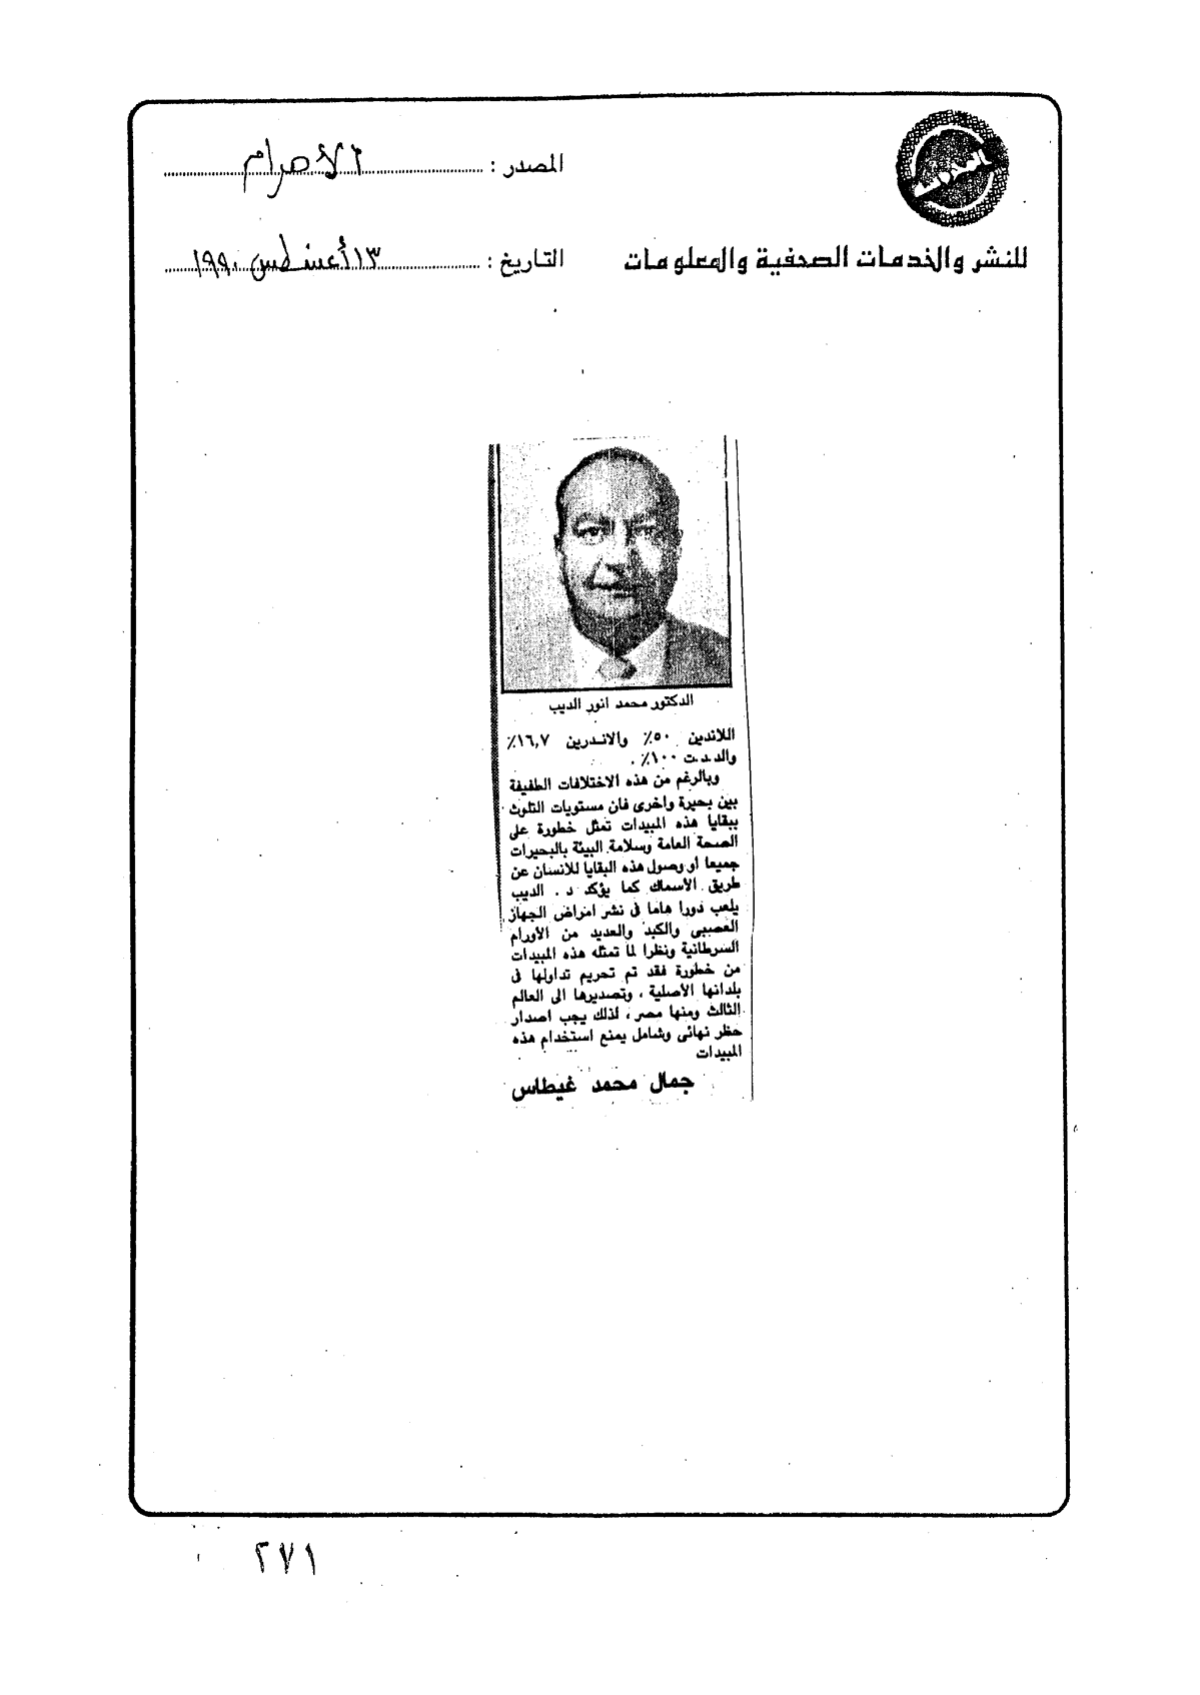 المصدر : الأهرام
للنشر والخدمات الصحفية والمعلومات
التاريخ : ١٣ أغسطس ١٩٩٠
الدكتور محمد انور الديب
اللاندين ٥٠٪ والاندرين ١٦,٧٪
والد.د.ت ١٠٠٪ .
وبالرغم من هذه الاختلافات الطفيفة
بين بحيرة واخرى فان مستويات التلوث
ببقايا هذه المبيدات تمثل خطورة على
الصحة العامة وسلامة البيئة بالبحيرات
جميعا أو وصول هذه البقايا للانسان عن
طريق الأسماك كما يؤكد د . الديب
يلعب دورا هاما فى نشر امراض الجهاز
العصبى والكبد والعديد من الأورام
السرطانية ونظرا لما تمثله هذه المبيدات
من خطورة فقد تم تحريم تداولها فى
بلدانها الأصلية ، وتصديرها الى العالم
الثالث ومنها مصر ، لذلك يجب اصدار
حظر نهائى وشامل يمنع استخدام هذه
المبيدات
جمال محمد غيطاس
٢٧١